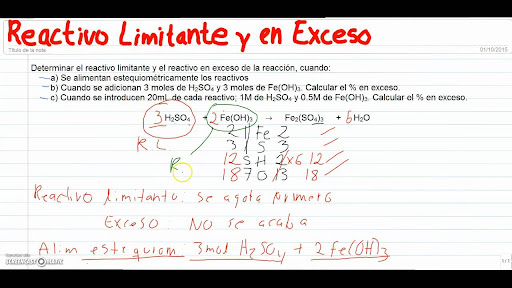 Reactivo Limitante y en Exceso
Título de la nota 01/10/2015
Determinar el reactivo limitante y el reactivo en exceso de la reacción, cuando:
a) Se alimentan estequiométricamente los reactivos
b) Cuando se adicionan 3 moles de H₂SO₄ y 3 moles de Fe(OH)₃. Calcular el % en exceso.
c) Cuando se introducen 20mL de cada reactivo; 1M de H₂SO₄ y 0.5M de Fe(OH)₃. Calcular el % en exceso.
3 H₂SO₄ + 2 Fe(OH)₃ → Fe₂(SO₄)₃ + 6 H₂O
2 Fe 2
R L 3 S 3
R. 12 H 2x6 12
18 O 13 18
Reactivo limitante: se agota primero
Exceso: NO se acaba
Alim estequiom 3mol H₂SO₄ + 2 Fe(OH)₃
SCREENCAST-O-MATIC 1/1